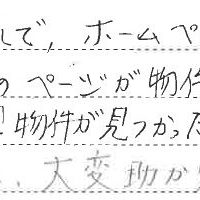 して、ホームペ
のページが物件
物件が見つかった
、大変助か